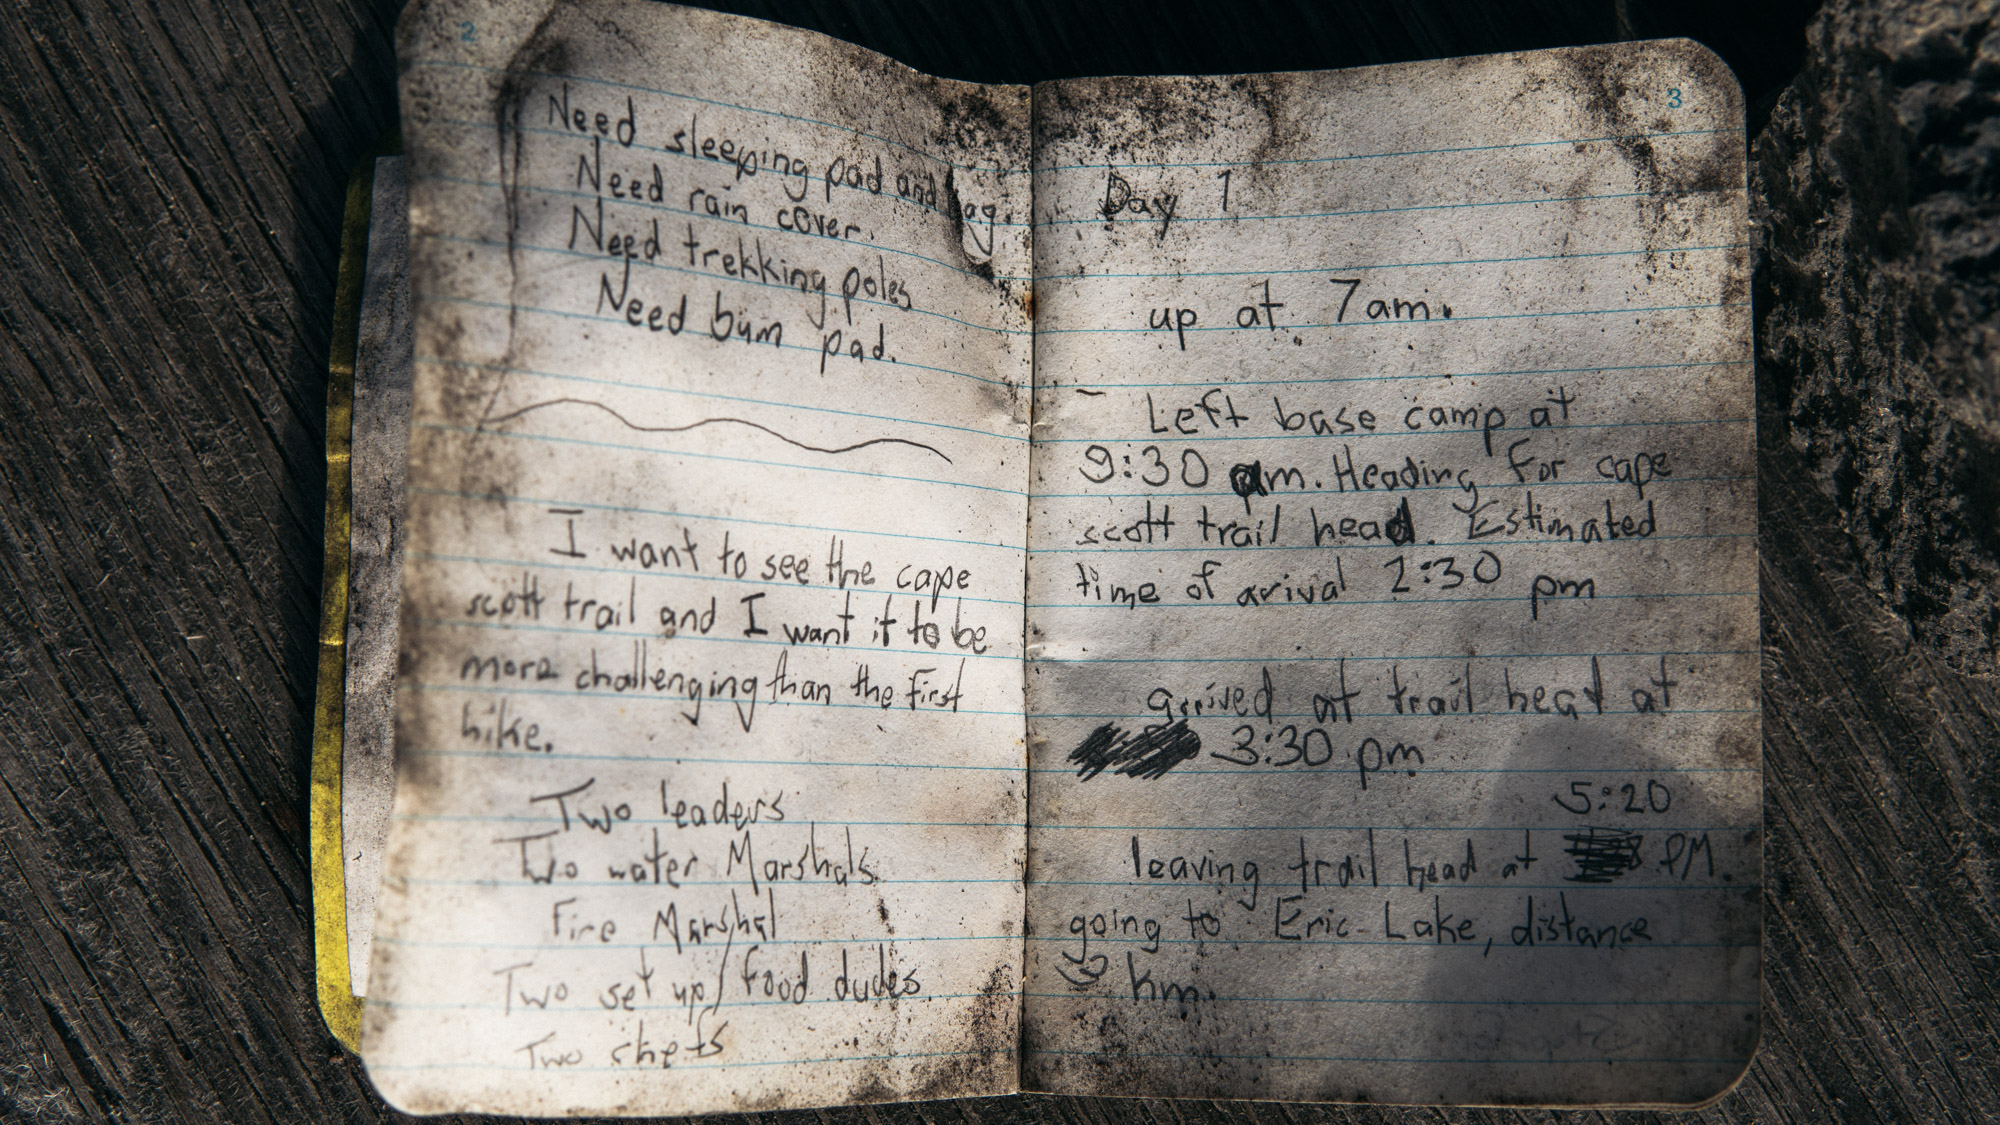 2
Need sleeping pad and bag.
Need rain cover.
Need trekking poles
Need bum pad.
I want to see the cape
scott trail and I want it to be
more challenging than the first
hike.
Two leaders
Two water Marshals
Fire Marshal
Two set up/food dudes
Two chefs
3
Day 1
up at 7am.
Left base camp at
9:30 am. Heading for cape
scott trail head. Estimated
time of arival 2:30 pm
arrived at trail head at
3:30 pm
5:20
leaving trail head at PM.
going to Eric Lake, distance
km.